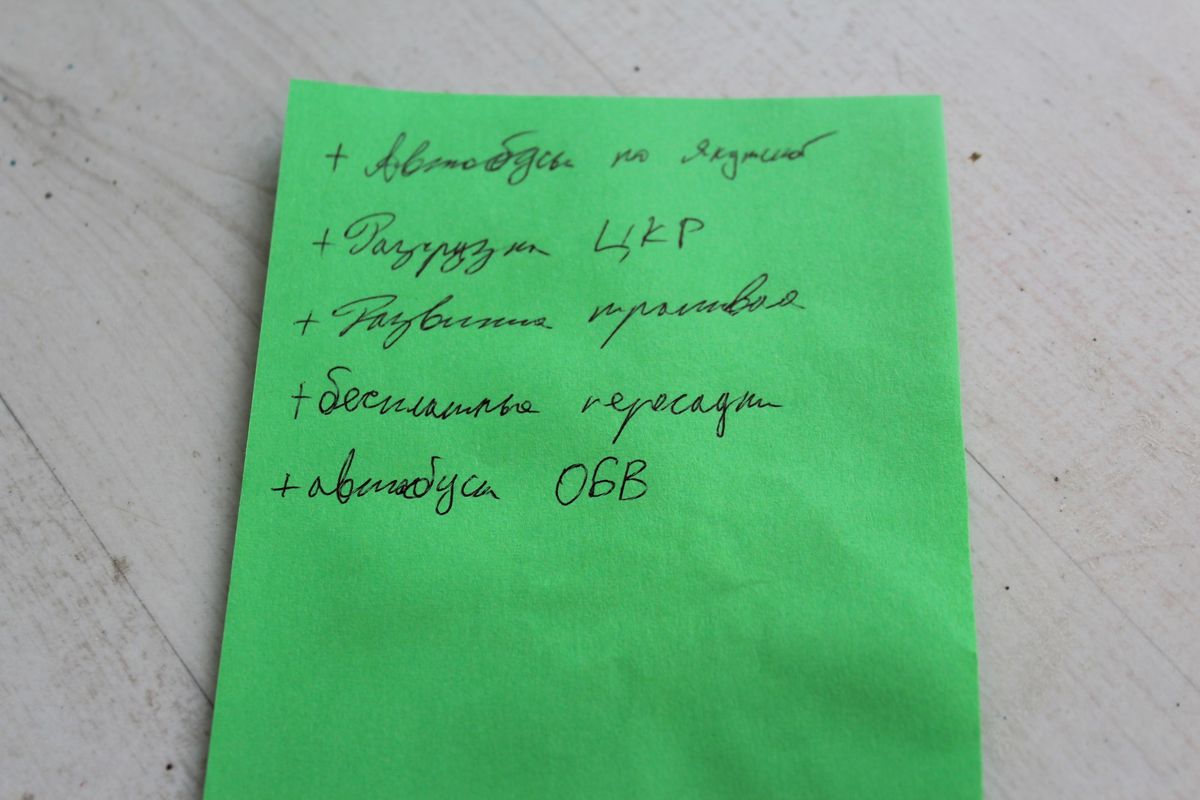 + Автобусы по Якутской
+ Разгрузка ЦКР
+ Развитие трамвая
+ бесплатные пересадки
+ автобусы ОБВ